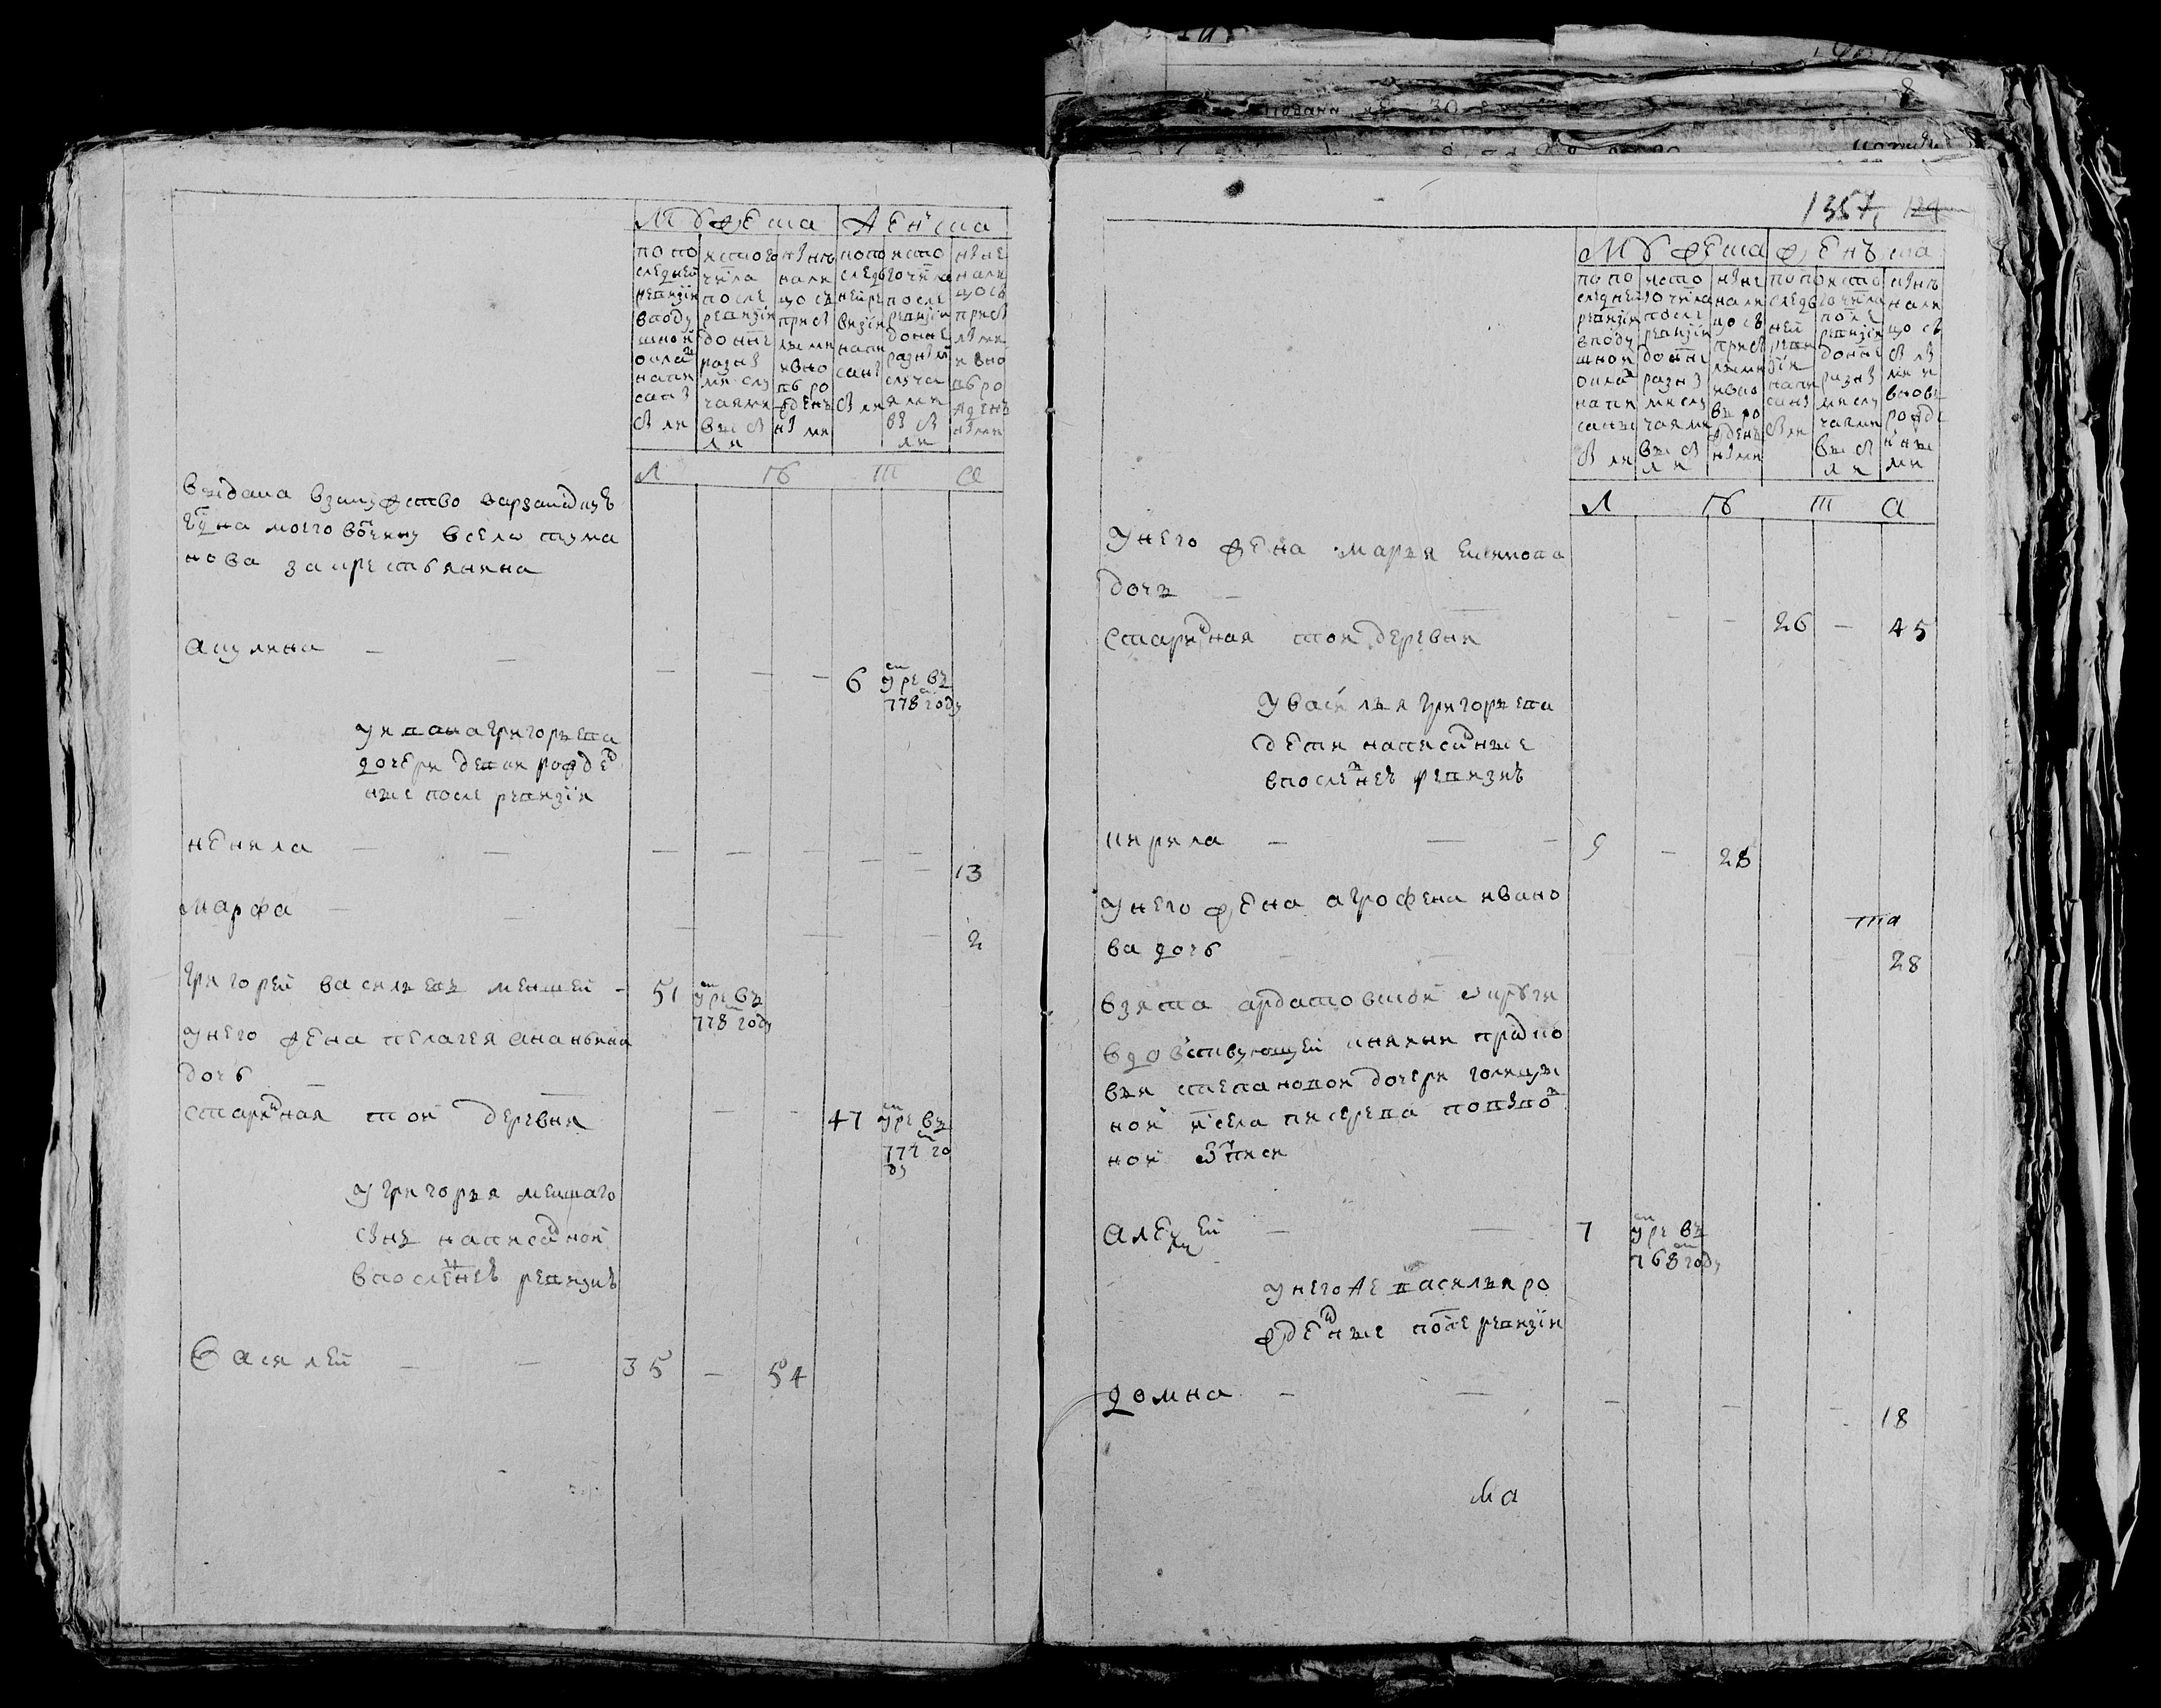 мужеска женска
по по
следней
ревизiи
в поду
шной
окла
напи
саны
были
изъ того
числа
после
ревизiи
до ныне
разны
ми слу
чаями
выбы
ли
ныне
нали
цо съ
прибы
лыми
и вно
вь ро
жден
ными
попо
следь
ней ре
визiи
напи
саны
были
изъ того
числа
после
ревизiи
до ныне
разными
случа
ями
выбы
ли
ныне
нали
цо съ
прибы
лыми
и вно
вь ро
жден
ными
л ѣ т а
выдана взамужство варзамаскую
моего вочину всело тума
нова за крестьянина
акулина — — — — — 6 умре въ
778 году
у ивана григорьева
дочери девки рожде
ные после ревизiи
ненила — — — — — — — 13
марфа — — — — — 2
григорей васильевъ меншей — 51 умре въ
778 году
у него жена пелагея ананьина
дочь —
старинная той деревни — — 47 умре въ
777 го
ду
у григорья меншаго
сынъ написанной
впоследнеѣ ревизиѣ
василей — — 35 — 54
1357,
мужеска женъска
по по
следней
ревизiи
в поду
шной
окла
напи
саны
были
изъ того
числа
после
ревизiи
до ныне
разны
ми слу
чаями
выбы
ли
ныне
нали
цо съ
прибы
лыми
и вно
вь ро
жден
ными
по по
следь
ней
реви
зiи
напи
саны
были
изъ того
числа
после
ревизiи
до ныне
разны
ми слу
чаями
выбы
ли
нынъ
нали
цо съ
бы лы
ми и
вновь
рожде
нны
ми
л ѣ т а
у него жена марья
дочь —
старинная той деревни — — 26 — 45
у василья григорьева
дети написанные
впоследнеѣ ревизиѣ
кирила — — — 9 — 28
у него жена агрофена ивано
ва дочь — — — — — 28
взята ардатовской округи
вдовствующей княини праскo
вьи степановой дочери голицы
ной села писерева
ной отписи
алексей — — 7 умре въ
768 году
у него же василья ро
жденые после ревизiи
домна — — — — — 18
ма